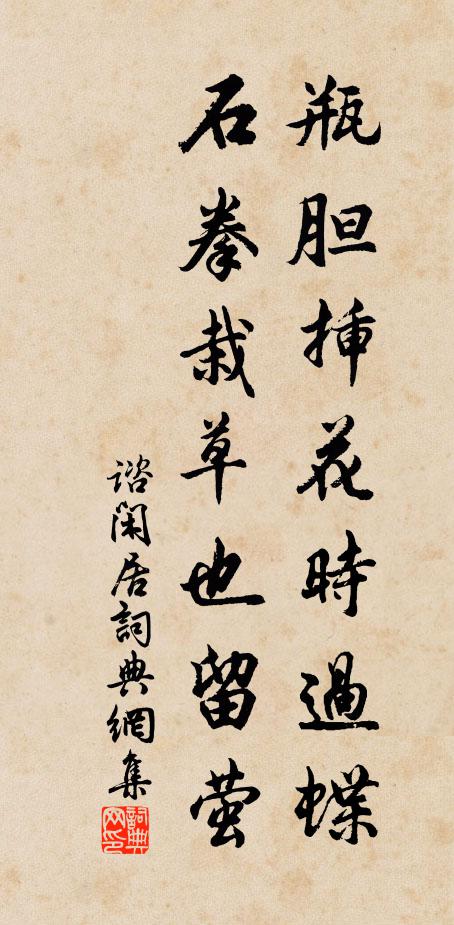 瓶胆插花時過蝶
石拳栽草也留萤
諮閑居詞典網集
詞典網印